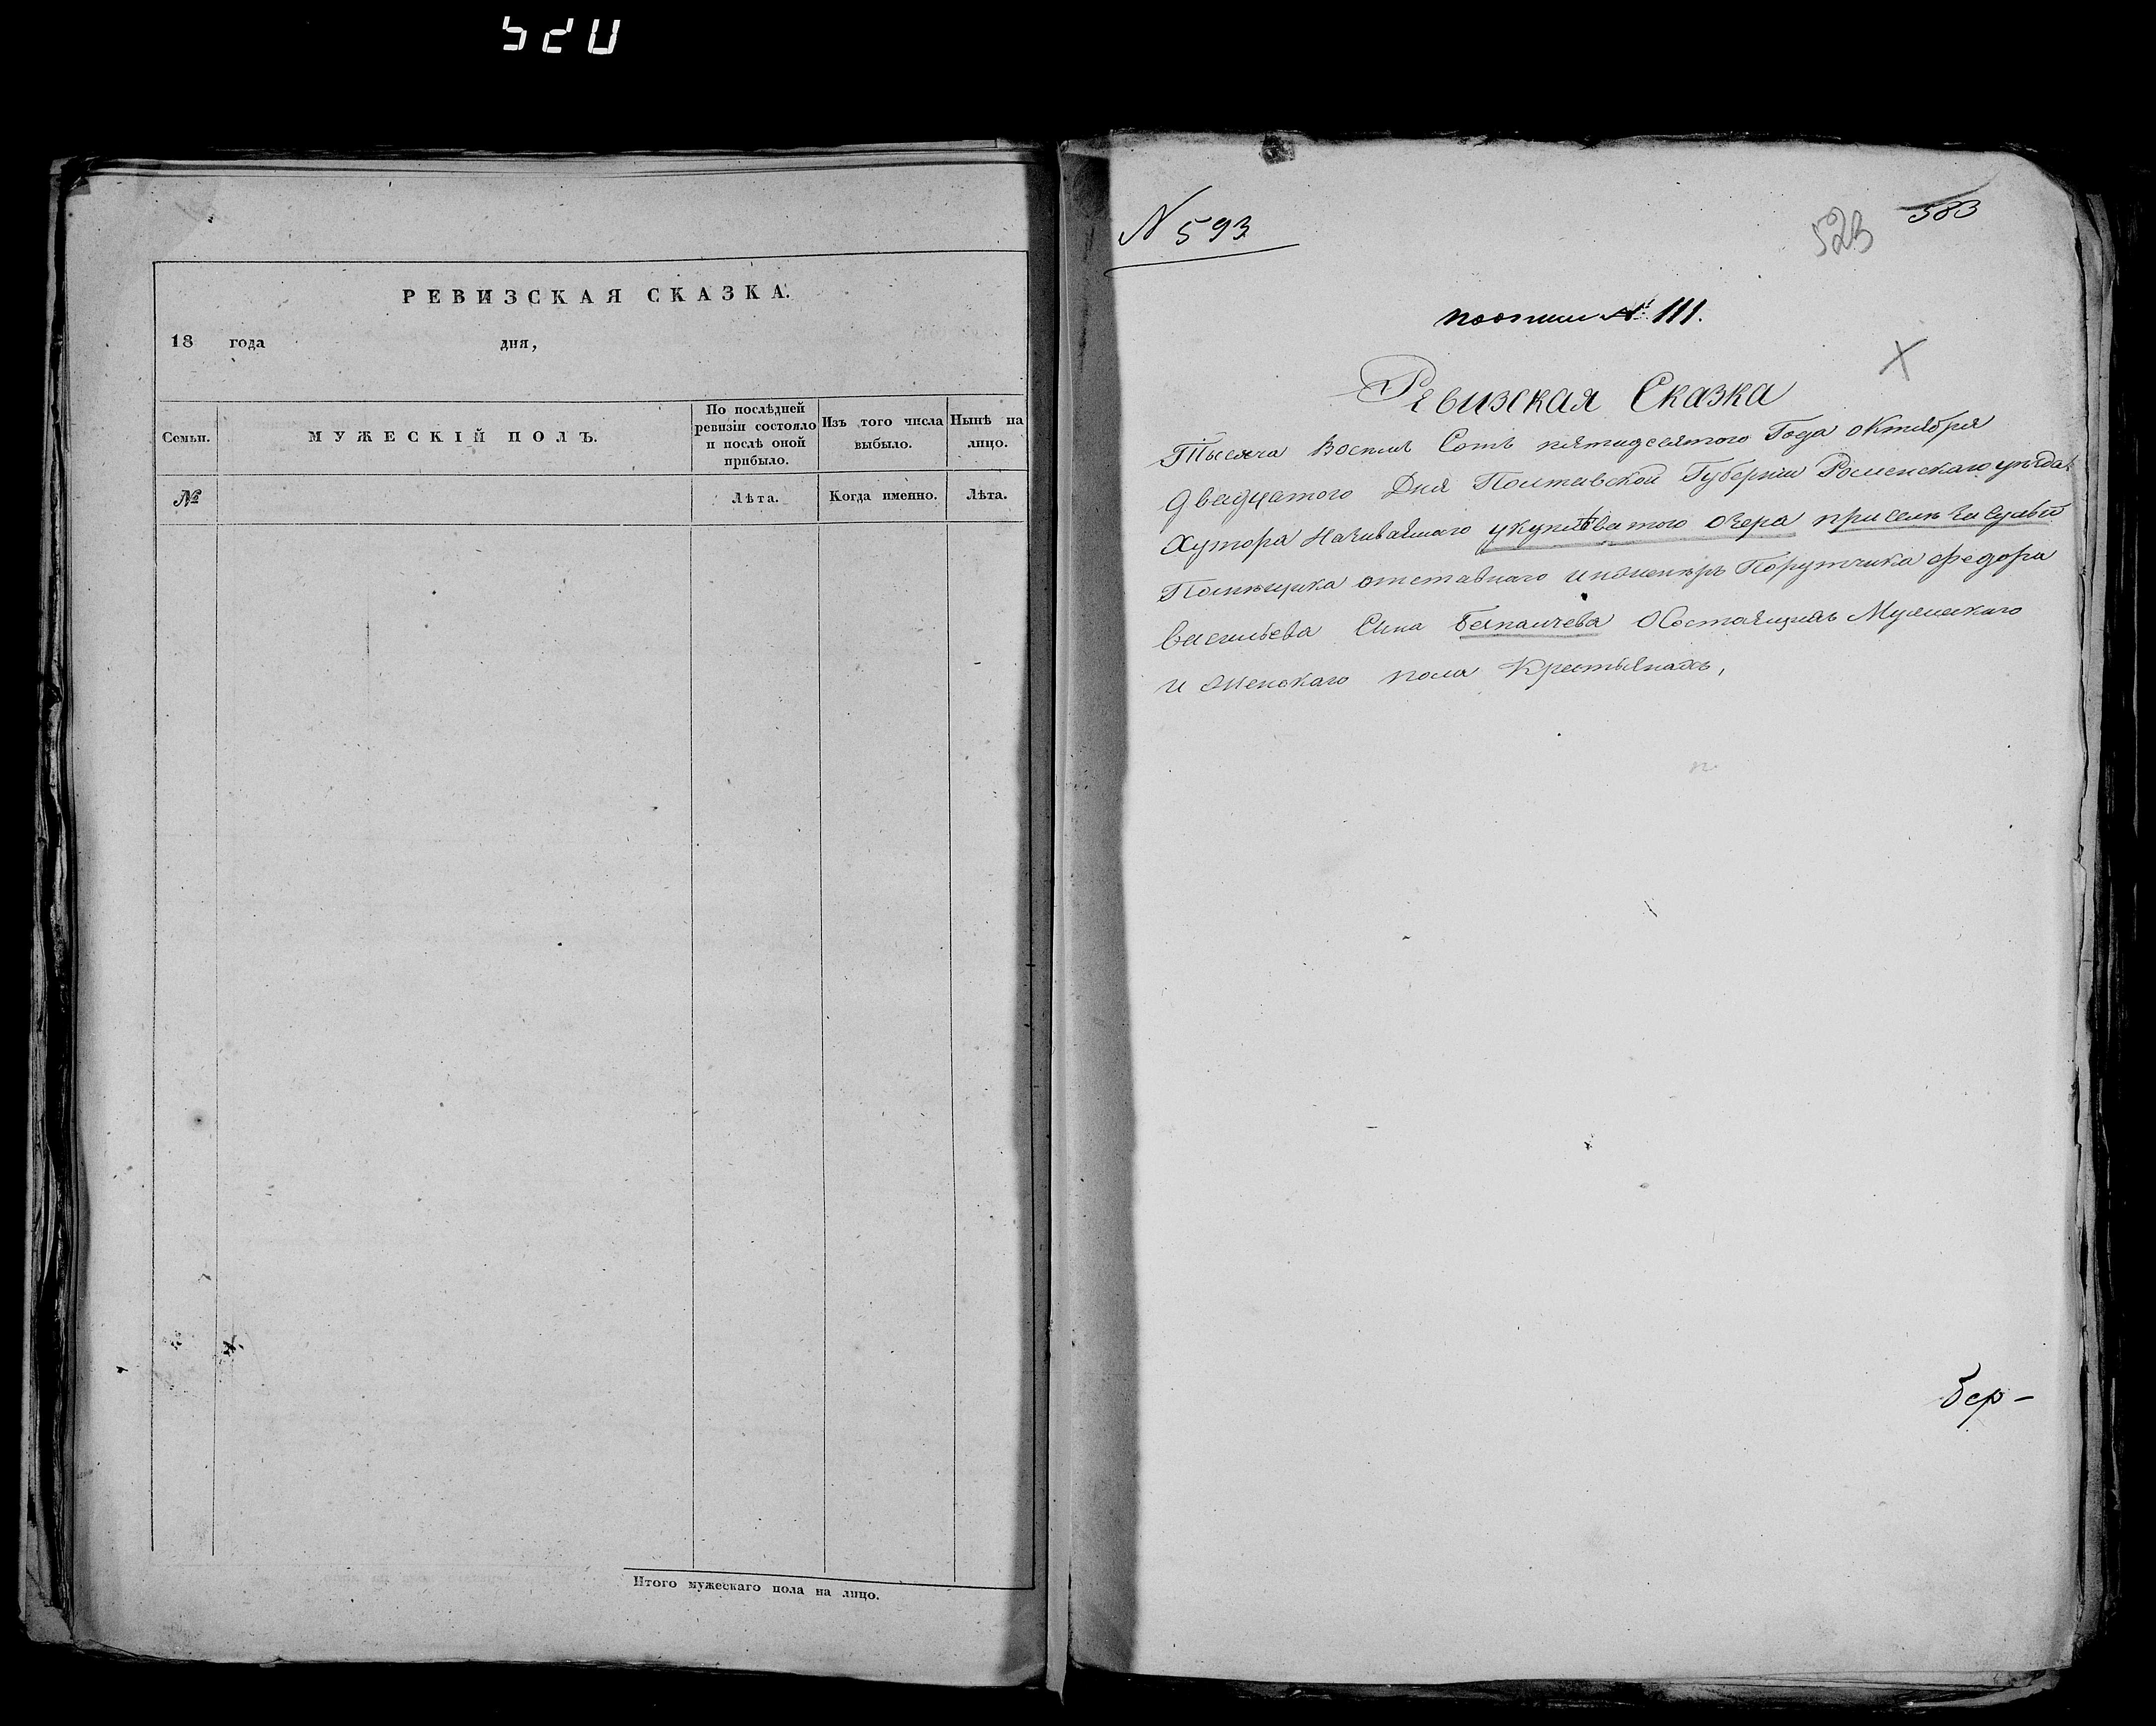 520
РЕВИЗСКАЯ СКАЗКА.
18 года дня,
Семьи.
МУЖЕСКІЙ ПОЛЪ.
По послѣдней
ревизіи состояло
и послѣ оной
прибыло.
Изъ того числа
выбыло.
Нынѣ на
лицо.
№
Лѣта.
Когда именно.
Лѣта.
Итого мужескаго пола на лицо.
N 593
523 583
№ 111.
Ревизская Сказка
Тысяча Восемь Сотъ пятидесятого Года октября
двадцатого Дня Полтавской Губернии Роменскаго уѣзда
Хутора Называймаго укупѣватого озера при селѣ
Помѣщика отставнаго инженеръ Порутчика федора
Васильева Сына о Состоящихъ Мужескаго
и женскаго пола Крестьянахъ,